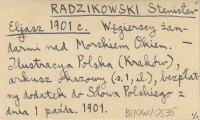 RADZIKOWSKI Stanisław
Eljasz 1901 r. Węgierscy żan-
darmi nad Morskiem Okiem. —
Ilustracya Polska (Kraków),
arkusz okazowy (s. 1, il.), bezpłat-
ny dodatek do Słowa Polskiego z
dnia 1 paźdz. 1901.